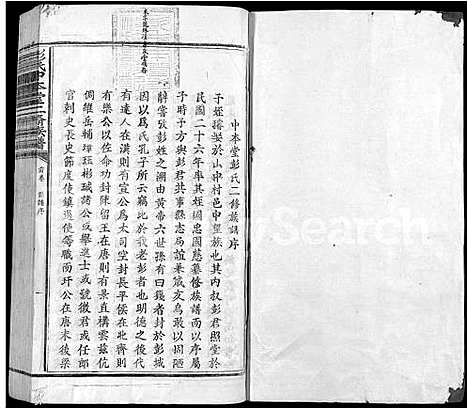 中本堂彭氏二修族譜序
予姪壻娶於山中村邑中望族也其內叔彭君照堂於
民國二十六年率其姪國慈纂修族譜而以序屬
予時予方與彭君共事縣志局誼兼歲友烏敢以固陋
辭嘗攷彭姓之溯由黃帝六世孫有曰錢者封於彭城
因以爲氏孔子所云竊比於我老彭者也明德之後代
有達人在漢則有宣公爲大司空封長平侯在北齊則
有樂公以佐命功封陳留王在唐則有景直構雲兹伉
倜維岳輔玕珏彬瑊諸公或舉進士或號徵君或任郎
官刺史長史節度使鎮遏使等職而玕公在唐末後梁
彭氏中本堂二修族譜
首卷
彭譜序